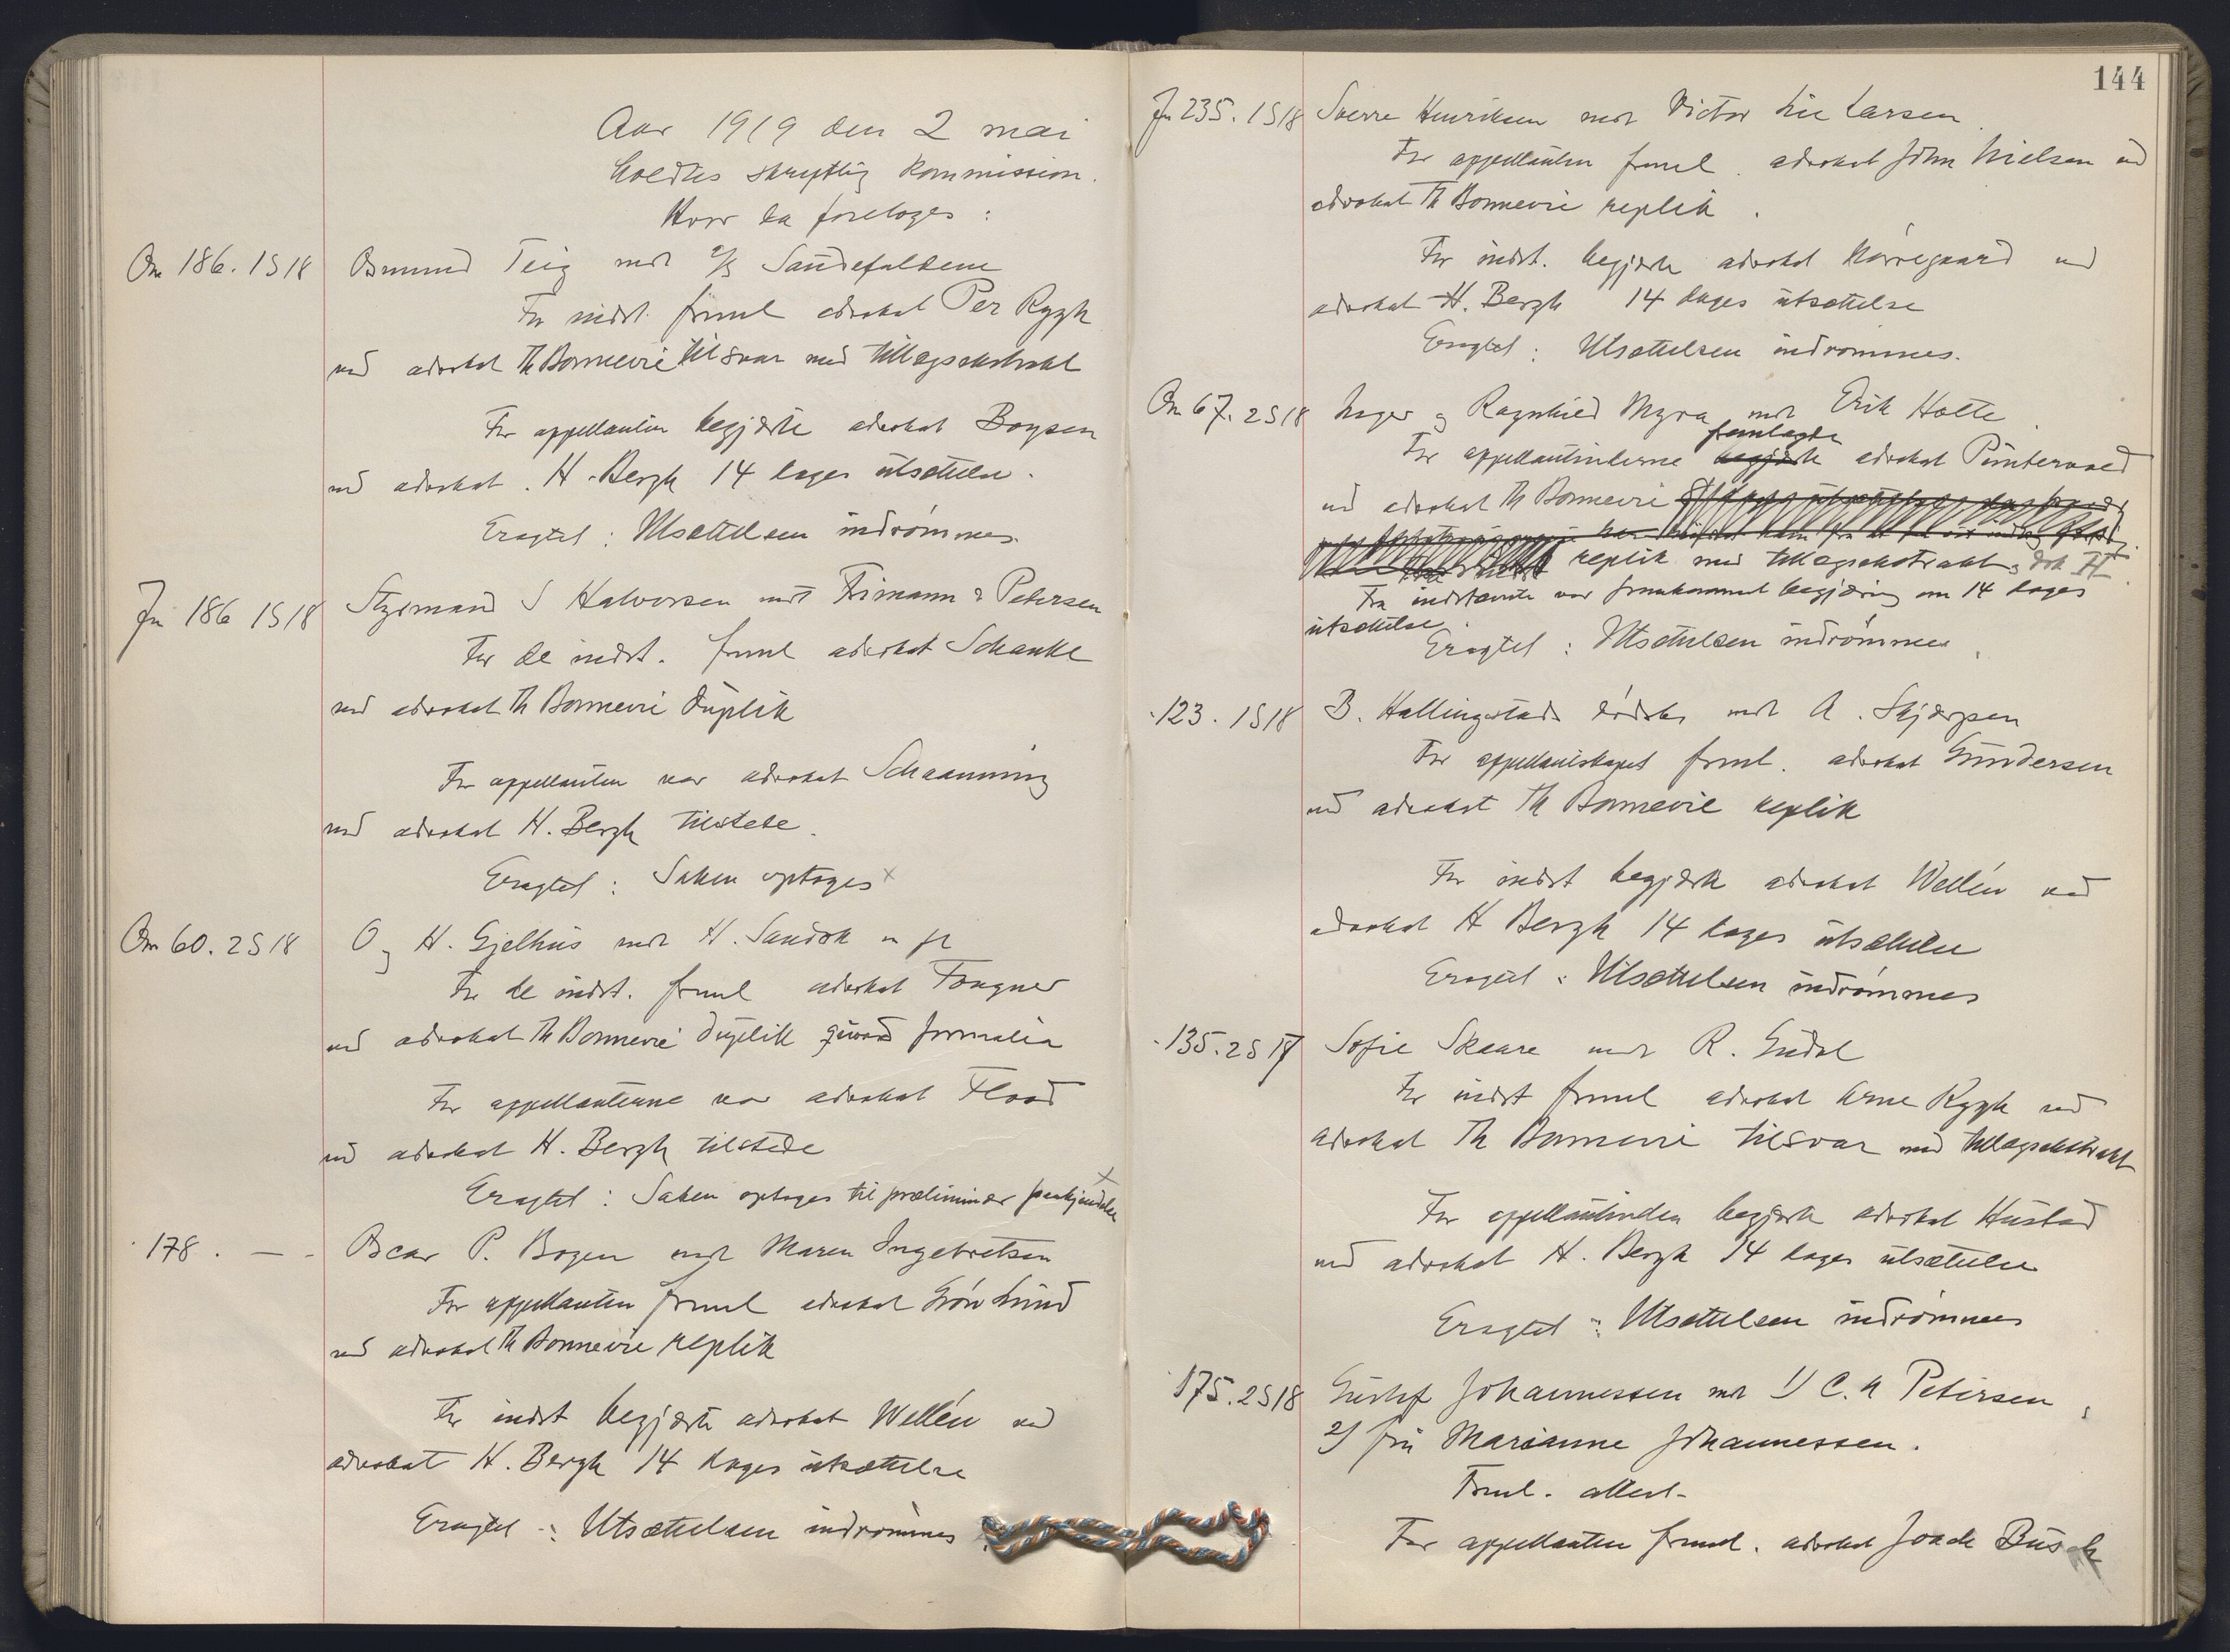 Aar 1919 den 2 mai
holdtes skriftlig kommission.
Hvor da foretoges:
On 186. 1S18 Osmund Teig mot a/s Sandefaldene
For indst. freml advokat Per Rygh
ved advokat Th Bonnevie tilsvar med tillægsekstrakt
For appellanten begjærte advokat Boysen
ved advokat H. Bergh 14 dages utsættelse.
Eragtet: Utsættelsen indrømmes.
Jn 186 1S18 Sigmund S Halvorsen mot Frimann & Petersen
For de indst. freml advokat Schanke
ved advokat Th Bonnevie duplik
For appellanten var advokat Schaanning
ved advokat H. Bergh tilstede.
Eragtet: Saken optages x
On 60. 2S18 O og H. Gjelhus mot H. Sandok m fl
For de indst. freml advokat Fougner
ved advokat Th Bonnevie duplik quoad formalia
For appellanterne var advokat Flood
ved advokat H. Bergh tilstede
Eragtet: Saken optages til præliminær paakjendelse x
178. — - Oscar P. Bogen mot Maren Ingebretsen
For appellanten freml advokat Grøn Lund
ved advokat Th Bonnevie replik
For indst begjærte advokat Wellén ved
advokat H. Bergh 14 dages utsættelse
Eragtet: Utsættelsen indrømmes.
144
Jn 235. 1S18 Sverre Henriksen mot Victor Lie Larsen.
For appellanten freml. advokat John Nielsen ved
advokat Th Bonnevie replik.
For indst. begjærte advokat Nørregaard ved
advokat H. Bergh 14 dages utsættelse
Eragtet: Utsættelsen indrømmes.
On 67. 2S18 og Ragnhild Myra mot Erik Holte.
fremlagde
For appellantinderne begjærte advokat Pintervold
ved advokat Th Bonnevie
replik med tillægsekstrakt og dok H.
Fra indstævnte var fremkommet begjæring om 14 dages
utsættelse.
Eragtet: Utsættelsen indrømmes.
-123. 1S18 B. Hallingstads dødsbo mot A. Skjærpen
For appellantskapet freml. advokat Gundersen
ved advokat Th Bonnevie replik
For indst begjærte advokat Wellén ved
advokat H Bergh 14 dages utsættelse
Eragtet: Utsættelsen indrømmes
-135. 2S17 Sofie Skaare mot R. Gudal
For indst freml advokat Arne Rygh ved
advokat Th Bonnevie tilsvar med tillægsekstrakt
For appellantinden begjærte advokat Hustad
ved advokat H. Bergh 14 dages utsættelse
Eragtet: Utsættelsen indrømmes
175. 2S18 Gustaf Johannessen mot 1) C. A Petersen,
2) fru Marianne Johannessen.
Freml. attest.
For appellanten freml. advokat Busch